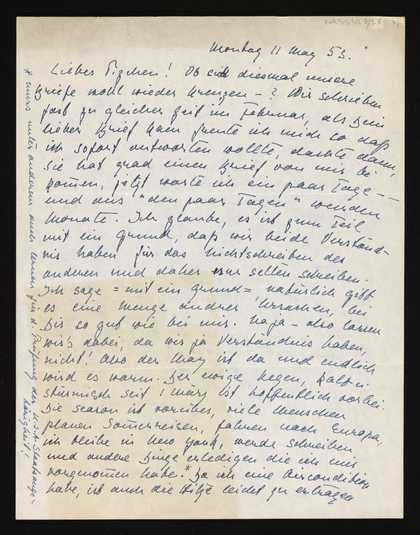 Montag 11 May 53.
Liebes Pigchen! Ob sich diesmal unsere
Briefe wohl wieder kreuzen - ? Wir schrieben
fast zu gleicher Zeit im Februar, als Dein
lieber Brief kam freute ich mich so dass
ich sofort antworten wollte, dachte dann,
sie hat grad einen Brief von mir be
kommen, jetzt warte ich ein paar Tage --
und aus "den paar Tagen" wurden
Monate. Ich glaube, es ist zum Teil
mit ein Grund, dass wir beide Verständ-
nis haben für das Nichtschreiben des
anderen und daher nur selten schreiben.
Ich sage = mit ein Grund = natürlich gibt
es eine Menge andrer Ursachen, bei
Dir so gut wie bei mir. Naja - also lassen
wir's dabei, da wir ja Verständnis haben,
nicht! Also der May ist da und endlich
wird es warm. Der ewige Regen, kalt u.
stürmisch seit 1 März ist hoffentlich vorbei.
Die season ist vorüber, viele Menschen
planen Sommerreisen, fahren nach Europa,
ich bleibe in New York, werde schreiben
und andere Dinge erledigen die ich mir
vorgenommen habe. Da ich eine Aircondition
habe, ist auch die Hitze leicht zu ertragen
unter anderem auch lernen für d. Prüfung der U.S.A. Staatsange-
hörigkeit!